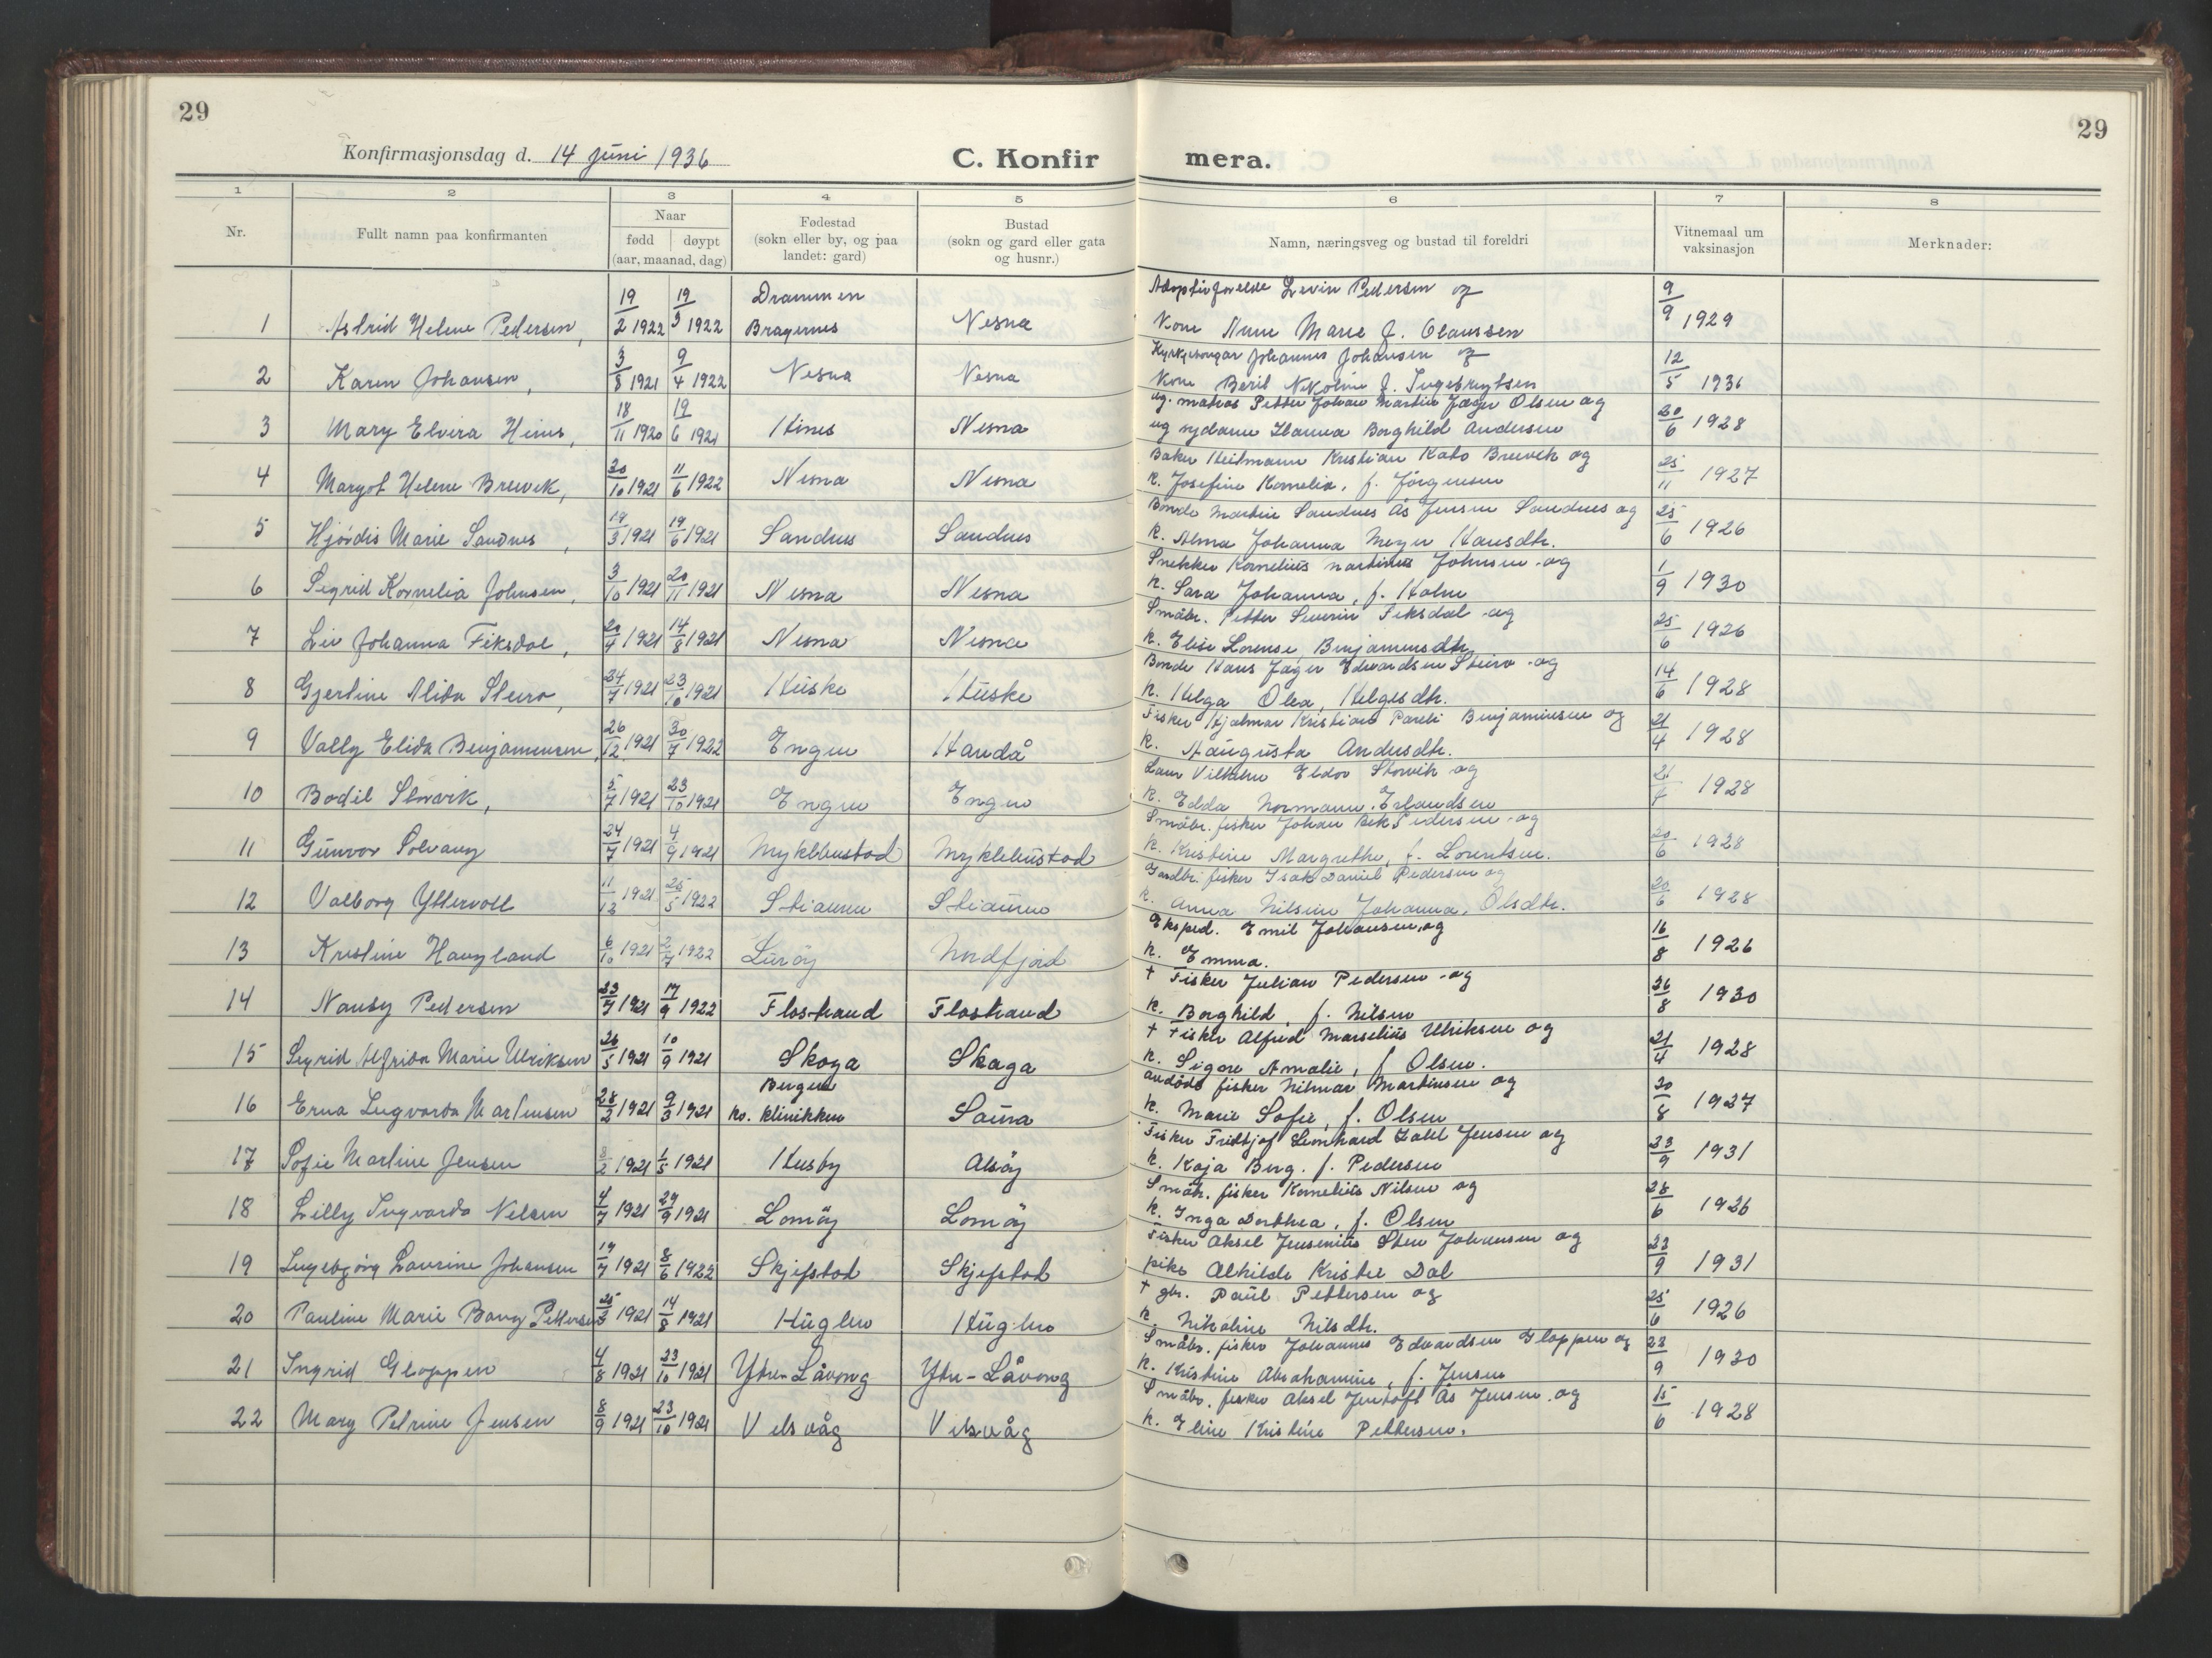 29
29
Konfirmasjonsdag d. 14 juni 1936
C. Konfir mera.
1 2 3 4 5 6 7 8
Nr.
Fullt namn paa konfirmanten
Naar
født døypt
(aar, maanad, dag)
Fødestad
(sokn eller by, og paa
landet: gard)
Bustad
(sokn og gard eller gata
og husnr.)
Namn, næringsveg og bustad til foreldri
Vitnemaal um
vaksinasjon
Merknader:
Drammen Adoptivforelde Levin Pedersen og
1 Astrid Helene Pedersen, 19/2 1922 19/3 1922 Bragernes Nesna Kone Anne Marie f. Olaussen 9/9 1929
Kyrkjesongar Johannes Johansen og
2 Karen Johansen, 3/8 1921 9/4 1922 Nesna Nesna Kone Beril Nikoline f. Ingebrigtsen 12/5 1936
ug. matros Petter Johan Martin Jæger Olsen og
3 Mary Elvira Hines, 18/11 1920 19/6 1921 Hines Nesna ug sydame Hanna Borghild Andersen 20/6 1928
Baker Heitmann Kristian Kato Breivik og
4 Margot Helene Breivik, 30/10 1921 11/6 1922 Nesna Nesna k. Josefine Kornelia, f. Jörgensen 25/11 1927
Bonde Martin Sandnes Ås Jensen Sandnes og
5 Hjördis Marie Sandnes, 19/3 1921 19/6 1921 Sandnes Sandnes k. Alma Johanna Meyer Hansdtr. 25/6 1926
Snekker Kornelius Martinus Johnsen og
6 Sigrid Kornelia Johnsen, 3/10 1921 20/11 1921 Nesna Nesna k. Sara Johanna, f. Holm 1/9 1930
Småbr. Petter Severin Fiksdal og
7 Liv Johanna Fiksdal, 20/4 1921 14/8 1921 Nesna Nesna k. Elise Lorense Benjaminsdtr. 25/6 1926
Bonde Hans Jæger Edvardsen Steiro og
8 Gjertine Alida Steiro, 24/7 1921 23/10 1921 Huske Huske k. Helga Olea, Helgesdtr. 14/6 1928
Fisker Hjalmar Kristian Pareli Benjaminsen og
9 Vally Elida Benjaminsen, 26/12 1921 30/7 1922 Engen Handå k. Augusta Andersdtr. 21/4 1928
Vilhelm Eldor Storvik og
10 Bodil Storvik, 5/7 1921 23/10 1921 Engen Engen k. Edda Normann Erlandsen 1928
Småbr. fisker Johan Bek Pedersen og
11 Gunvor Solvang 24/7 1921 4/9 1921 Myklebustad Myklebustad k. Kristine Margrethe, f. Lorentsen. 20/6 1928
Gardbr. fisker Isak Daniel Pedersen og
12 Valborg Yttervoll 11/12 1921 25/5 1922 Stiauren Stiauren k. Anna Nilsine Johanna, Olsdtr. 20/6 1928
Eksped. Emil Johansen og
13 Kristine Haugland 6/10 1921 2/7 1922 Luröy Nordfjord k. Emma. 16/8 1926
† Fisker Julian Pedersen og
14 Nansy Pedersen 23/7 1921 17/9 1922 Flostrand Flostrand k. Borghild, f. Nilsen 26/8 1930
† Fisker Alfred Marselius Ulriksen og
15 Sigrid Alfrida Marie Ulriksen 26/5 1921 10/9 1921 Skoga Skaga k. Signe Amalie, f Olsen. 21/4 1928
Bergen fisker Hilmar Martinsen og
16 Erna Ingvarda Martinsen 28/2 1921 9/3 1921 kv. klinikken Saura k. Marie Sofie, f. Olsen 30/8 1927
Fisker Fridtjof Leonhard Zahl Jensen og
17 Sofie Martine Jensen 1921 1/5 1921 Husby Alsöy k. Kaja Berg. f. Pedersen 23/9 1931
Småbr. fisker Kornelius Nilsen og
18 Lilly Ingvarda Nilsen 4/7 1921 24/9 1921 Lomöy Lomöy k. Inga Dorthea, f. Olsen 28/6 1926
Fisker Aksel Jensenius Sten Johansen og
19 Ingebjörg Laurine Johansen 19/7 1921 8/6 1922 Skjefstad Skjefstad pike Alhilde Kristie Dal 23/9 1931
† gbr. Paul Pettersen og
20 Pauline Marie Bang Pettersen 1921 14/8 1921 Huglen Huglen k. Nikoline Nilsdtr. 25/6 1926
Småbr. fisker Johannes Edvardsen Gloppen og
21 Ingrid Gloppen 4/8 1921 23/10 1921 Ytre-Låvong Ytre-Låvong k. Kristine Abrahamine, f. Jensen 23/9 1930
Småbr. fisker Aksel Jentoft Ås Jensen og
22 Mary Petrine Jensen 8/9 1921 23/10 1921 Velsvåg Velsvåg k. Eline Kristine Pettersen. 15/6 1928